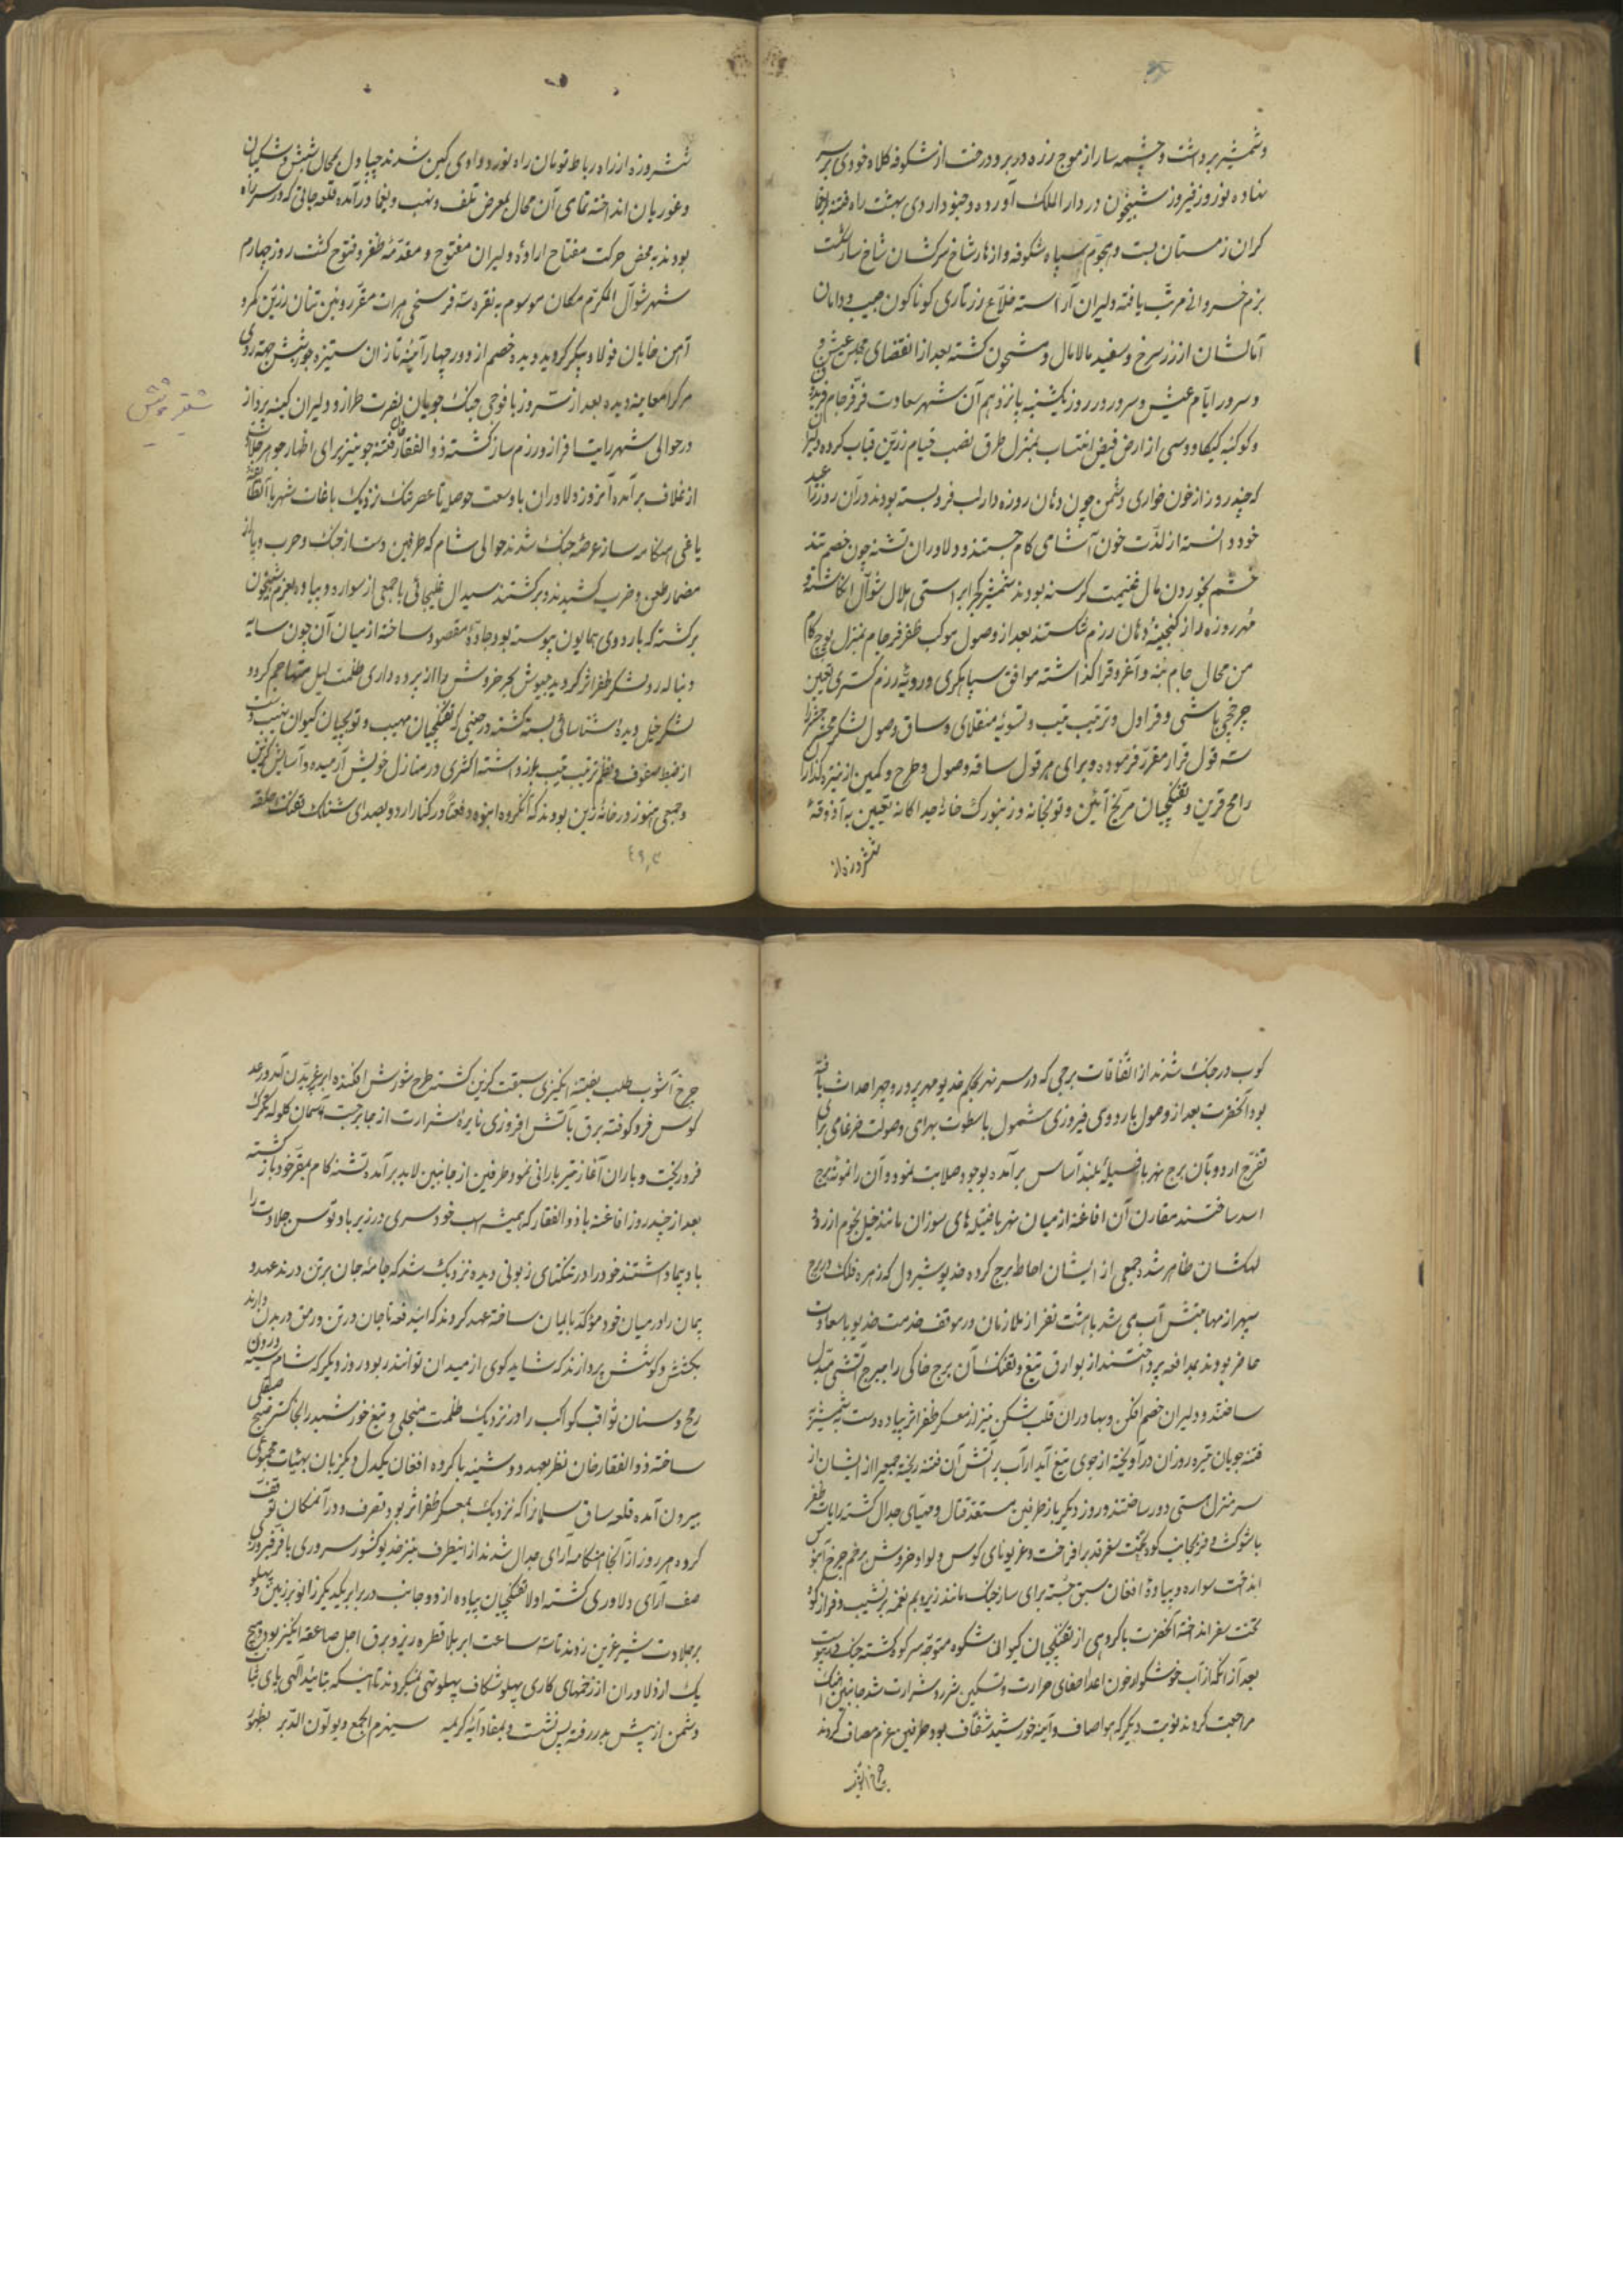 وشمشیر برداشت و چشمه سار از موج زره در بر و درخت از شکوفه کلاه خودی بر سر
نهاده نوروز فیروز شبیخون در دار الملک آورده و جنود اردی بهشت راه فتنه
کران زمستان بست و هجوم سپاه شکوفه و ازهار شاخ سرکشان شاخسار شکست
بزم خسروانی مرتب یافته دلیران آراسته خلاع زرتاری کوناکون جیب و دامان
آمالشان از زر سرخ و سفید مالامال و مشحون کشته بعد از انقضای مجلس عیش و
و سرور ایام عیش و سرور در روز یکشنبه پانزدهم آن شهر سعادت فرفرجام
وکوکبه کیکاووسی از ارض فیض انتساب بمنزل طرق نصب خیام زرین قباب کرده
که چند روز از خون خواری دشمن چون دهان روزه دار لب فرو بسته بودند در آن روز را عید
خود دانسته از لذت خون آشامی کام جستند و دلاوران تشنه چون خصم تند
خشم بخوردن مال غنیمت کرسنه بودند شمشیر کج را براستی هلال شوال انکاشته و
مهر روزه را از کنجینه دهان رزم شکستند بعد از وصول موکب ظفر فرجام بمنزل
من محال جام بنه و آغروق را کذاشته موافق سپاهکری و رویه رزم کستری تعیین
چرخچی باشی و قراول و ترتیب تیب و تسویه منقلای و ساق و صول لشکر
سه قول قرار مقرر فرموده و برای هر قول ساقه و صول و طرح و کمین از نیزه کذاران
رامح قرین و تفنکچیان مریخ آیین و توپخانه و زنبورک خانه جداکانه تعیین به آذوقه
ششروزه از
ششروزه از راه رباط تومان راه نورد وادی کین شدند چپاول بمحال شبش و شکیبان
و غوریان انداخته تمامی آن محال بمعرض تلف و نهب و یغما درآمده قلعه جاتی که در سر راه
بودند بمحض حرکت مفتاح اراده دلیران مفتوح و مقدمه ظفر و فتوح کشت روز چهارم
شهر شوال المکرم مکان موسوم به نقره سه فرسخی هرات مقر روئین تنان زرین کمر و
آهن خایان فولاد پیکر کردید و دیده خصم از دور چهار آئینه تازان ستیزه جو شش جهة روی
مرک را معاینه دیده بعد از سه روز با فوجی جنک جویان نصرت طراز و دلیران کینه پرداز
در حوالی شهر رایت افراز و رزم ساز کشته ذو الفقار خان فتنه جو نیز برای اظهار جوهر جلادت
از غلاف برآمده آنروز دلاوران با وسعت حوصله تا عصر تنک نزدیک باغات شهر با آن طایفه
یاغی هنکامه ساز عرصه جنک شدند حوالی شام که طرفین دست از جنک و حرب و پا از
مضمار طعن و ضرب کشیدند و برکشتند سیدال غلیجائی با جمعی از سواره و پیاده بعزم شبیخون
برکشته که باردوی همایون پیوسته بود جاده مقصود ساخته از میان آن چون سایه
دنباله رو لشکر ظفر اثر کردید جیوش بحر خروش را از پرده داری ظلمت لیل متهاجم کرد و
لشکر خیل دیده شناسائی بسته کشته در حینی که تفنکچیان مهیب و توپچیان کیوان نهیب دست
از ضبط صفوف و نظم ترتیب تیب باز داشته اکثری در منازل خویش آرمیده و آسایش کزین
و جمعی هنوز در خانه زین بودند که آنکروه انبوه دفعة در کنار اردو بصدای شلیک تفنک حلقه
شقر و شش
کوب در جنک شدند از اتفاقات برجی که در سر نهر بحکم خدیو مهر پرور و چهر احداث یافته
بود آنحضرت بعد از وصول باردوی فیروزی شمول با سطوت بهرامی و صولت ضرغامی برای
تفرج اردو بآن برج سهر بافسیله بلند آساس برآمده بوجود صلابت نمود و آن را نمونه برج
اسد ساختند مقارن آن افاغنه از میان نهر با فتیله های سوزان مانند خیل نجوم از رود
کهکشان ظاهر شده جمعی از ایشان احاطه برج کرده خدیو شیر دل که زهره فلک در برج
سپهر از مهابتش آب می شد با هشت نفر از ملازمان در موقف خدمت خدیو با سعادت
حاضر بودند بمدافعه پرداختند از بوارق تیغ و تفنک آن برج خاکی را ببرج آتشی مبدل
ساختند و دلیران خصم افکن و بهادران قلب شکن نیز از معسکر ظفر اثر پیاده دست بشمشیر
فتنه جویان تیره روزان درآویخته از جوی تیغ آبدار آب بر آتش آن فتنه ریخته جمعی را از ایشان از
سر منزل هستی دور ساختند و روز دیکر باز طرفین مستعد قتال و مهیای جدال کشته رایات ظفر
با شوکت و فر بجانب کوه تخت سفر قد برافراخت و غریو نای کوس و لوله و خروش بر خم چرخ آبنوس
انداخت سواره و پیاده افغان سبق جسته برای ساز جنک مانند زیر و بم نغمه بر نشیب و فراز کوه
تخت سفر انداخته آنحضرت با کروهی از تفنکچیان کیوان شکوه متوجه سر کوه کشته جنک در پیوست
بعد از آنکه از آب خوشکوار خون اعدا صفای حرارت و تسکین شرر و شرارت شد جانبین از جنک
مراجعت کردند نوبت دیکر که هوا صاف و آئینه خورشید شفاف بود طرفین عزم مصاف کردند
چرخ آشوب
چرخ آشوب طلب بفتنه انکیزی سبقت کزین کشته طرح شورش افکنده ابر بغریدن آمد و رعد
کوس فرو کوفته برق بآتش افروزی نایره شرارت از جا برجست و آسمان کلوله تکرک
فرو ریخت و باران آغاز تیر بارانی نمود طرفین از جانبین لابد برآمده تشنه کام بمقر خود باز کشته
بعد از چند روز افاغنه با ذو الفقار که همیشه اسب خود سری در زیر باد و توسن جلادت را
باد پیما داشتند خود را در تنکنای زبونی دیده نزدیک شد که جامه جان بر تن درند عهد و
پیمان را در میان خود مؤکد بایمان ساخته عهد کردند که ایندفعه تا جان در تن و رمق در بدن دارند
بکشش و کوشش پردازند که شاید کوی از میدان توانند ربود روز دیکر که شام سینه درون
رمح و سنان ثواقب کواکب را در نزدیک ظلمت منجلی و تیغ خورشید را بخاکستر صبح صیقلی
ساخته ذو الفقار خان نظر بعهد دوشینه با کروه افغان یکدل و یکزبان بهیئات مجموعی
بیرون آمده قلعه ساق سلمان را که نزدیک بمعسکر ظفر اثر بود تصرف و در آنمکان توقف
کرده هر روز از آنجا هنکامه آرای جدال شدند از اینطرف نیز خدیو کشور سروری با فر فیروزی
صف آرای دلاوری کشته اولا تفنکچیان پیاده از دو جانب در برابر یکدیکر زانو بر زمین و پهلو
بر جلادت شیر عرین زدند تا سه ساعت ابر بلا قطره ریز و برق اجل صاعقه انکیز بود و هیچ
یک از دلاوران از زخمهای کاری پهلو شکاف پهلو تهی نمیکردند تا اینکه بتائید الهی پای ثبات
دشمن از پیش بدر رفته پس نشست و بمفاد آیه کریمه سیهزم الجمع و یولون الدبر بظهور